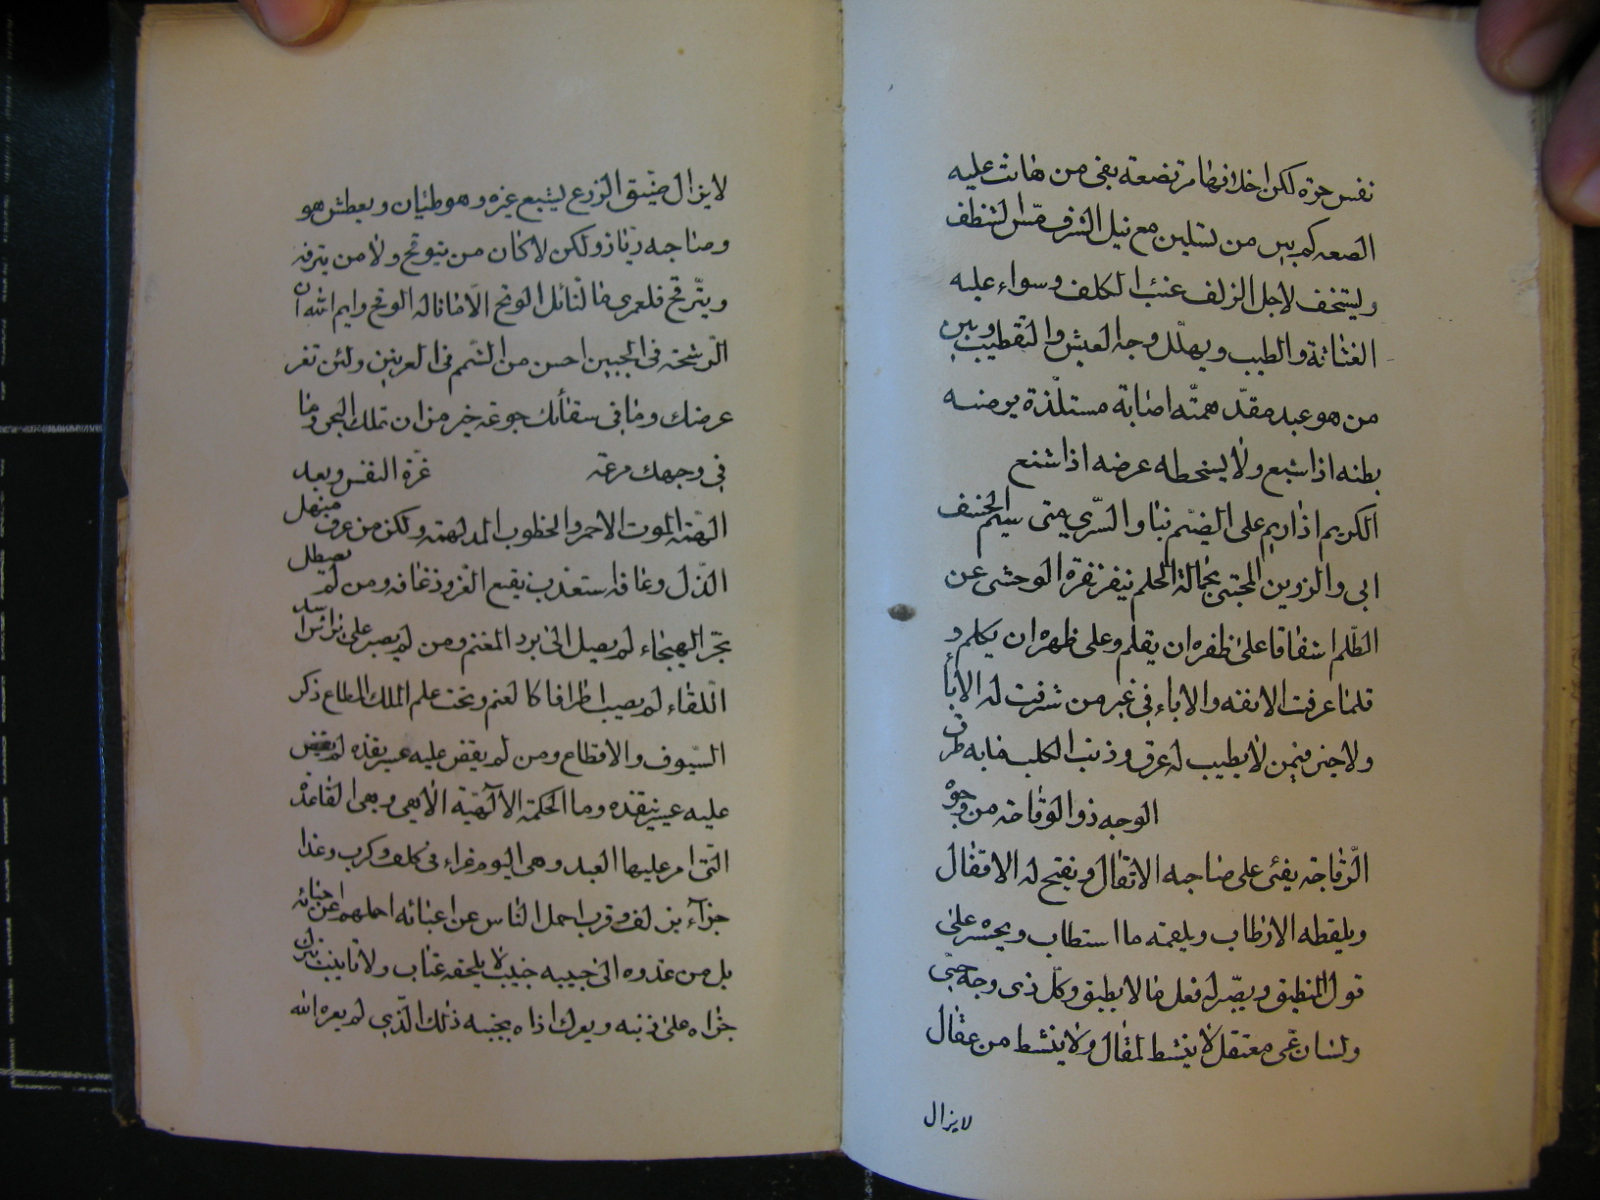 نفس حرة لكن اخلافها مرتضعة بفي من هانت عليه
الصعه كم بين من يستلين مع نيل الشرف مسّ الشظف
ويستخف لاجل الزلف عنب الكلف وسواء عليه
الغثاثة والطيب ويهلّل وجه العيش والتقطيب وبين
من هو عبد مقدّ همته اصابة مستلذّة يومضه
بطنه اذا شبع ولا يسخطه عرضه اذا شنع
الكريم اذا ريم على الضيم نبا والسّري متى سيم الخسف
ابى والرزين المحتبى بحمالة الحلم ينفر نفرة الوحشى عن
الظلم اشفاقا على ظفره ان يقلم وعلى ظهره ان يكلم و
قلما عرفت الانفه والاباء في غير من شرفت له الأبا
ولا خير فيمن لا يطيب له عرق وذنب الكلب ما به طرق
الوجه ذو الوقاحه من وجوه
الرّقاحة يفئ على صاحبه الانفال ويفتح له الاقفال
ويلقطه الارطاب ويلقمه ما استطاب ويجسر على
قول المنطيق ويصّر له فعل ما لا يطيق وكلّ ذى وجه حيّي
ولسان عيّ معتقل لا ينشط لمقال ولا ينشط من عقال
لا يزال
لا يزال ضيّق الزرع ليشبع غيره وهو طيان ويعطش هو
وصاحبه ريّان ولكن لا كان من يتوقح ولا من يترفه
ويترقّح فلعمرى ما النائل الوتح الّا ما ناله الوقح وايم الله ان
الرّشحة في الجبين احسن من الشمم في العرنين ولئن تفر
عرضك وما في سقائك جرعة خير من ان تملك البحر وما
في وجهك مزعة عزّة النفس وبعد
الهمّة الموت الاحمر والخطوب المدلهمة ولكن من عرف منهل
الذّل وعافه استعذب نقيع العز وذعافه ومن لم يصطل
بحرّ الهيجاء لم يصل الى برد المغنم ومن لم يصبر على براثن اسد
اللّقاء لم يصب اطرافا كا لعنم وتحت علم الملك المطاع ذكر
السّيوف والاقطاع ومن لم يقض عليه عسر يقذه لم يقيّض
عليه عسر ينقذه وما الحكمة الا الٓهية الا هى وهى القاعدة
التى امر عليها العبد وهى اليوم غراء في كلف وكرب وغدا
جزآء بزلف وقرب احمل النّاس عن اعبائه احملهم عن احبائه
بل من عدوه الى جنبه جنيب لا يلحقه عتاب ولا تانيب يترك
جزاه على ذنبه ويعرك اذاه بجنبه ذلك الّذى لم يعره الله